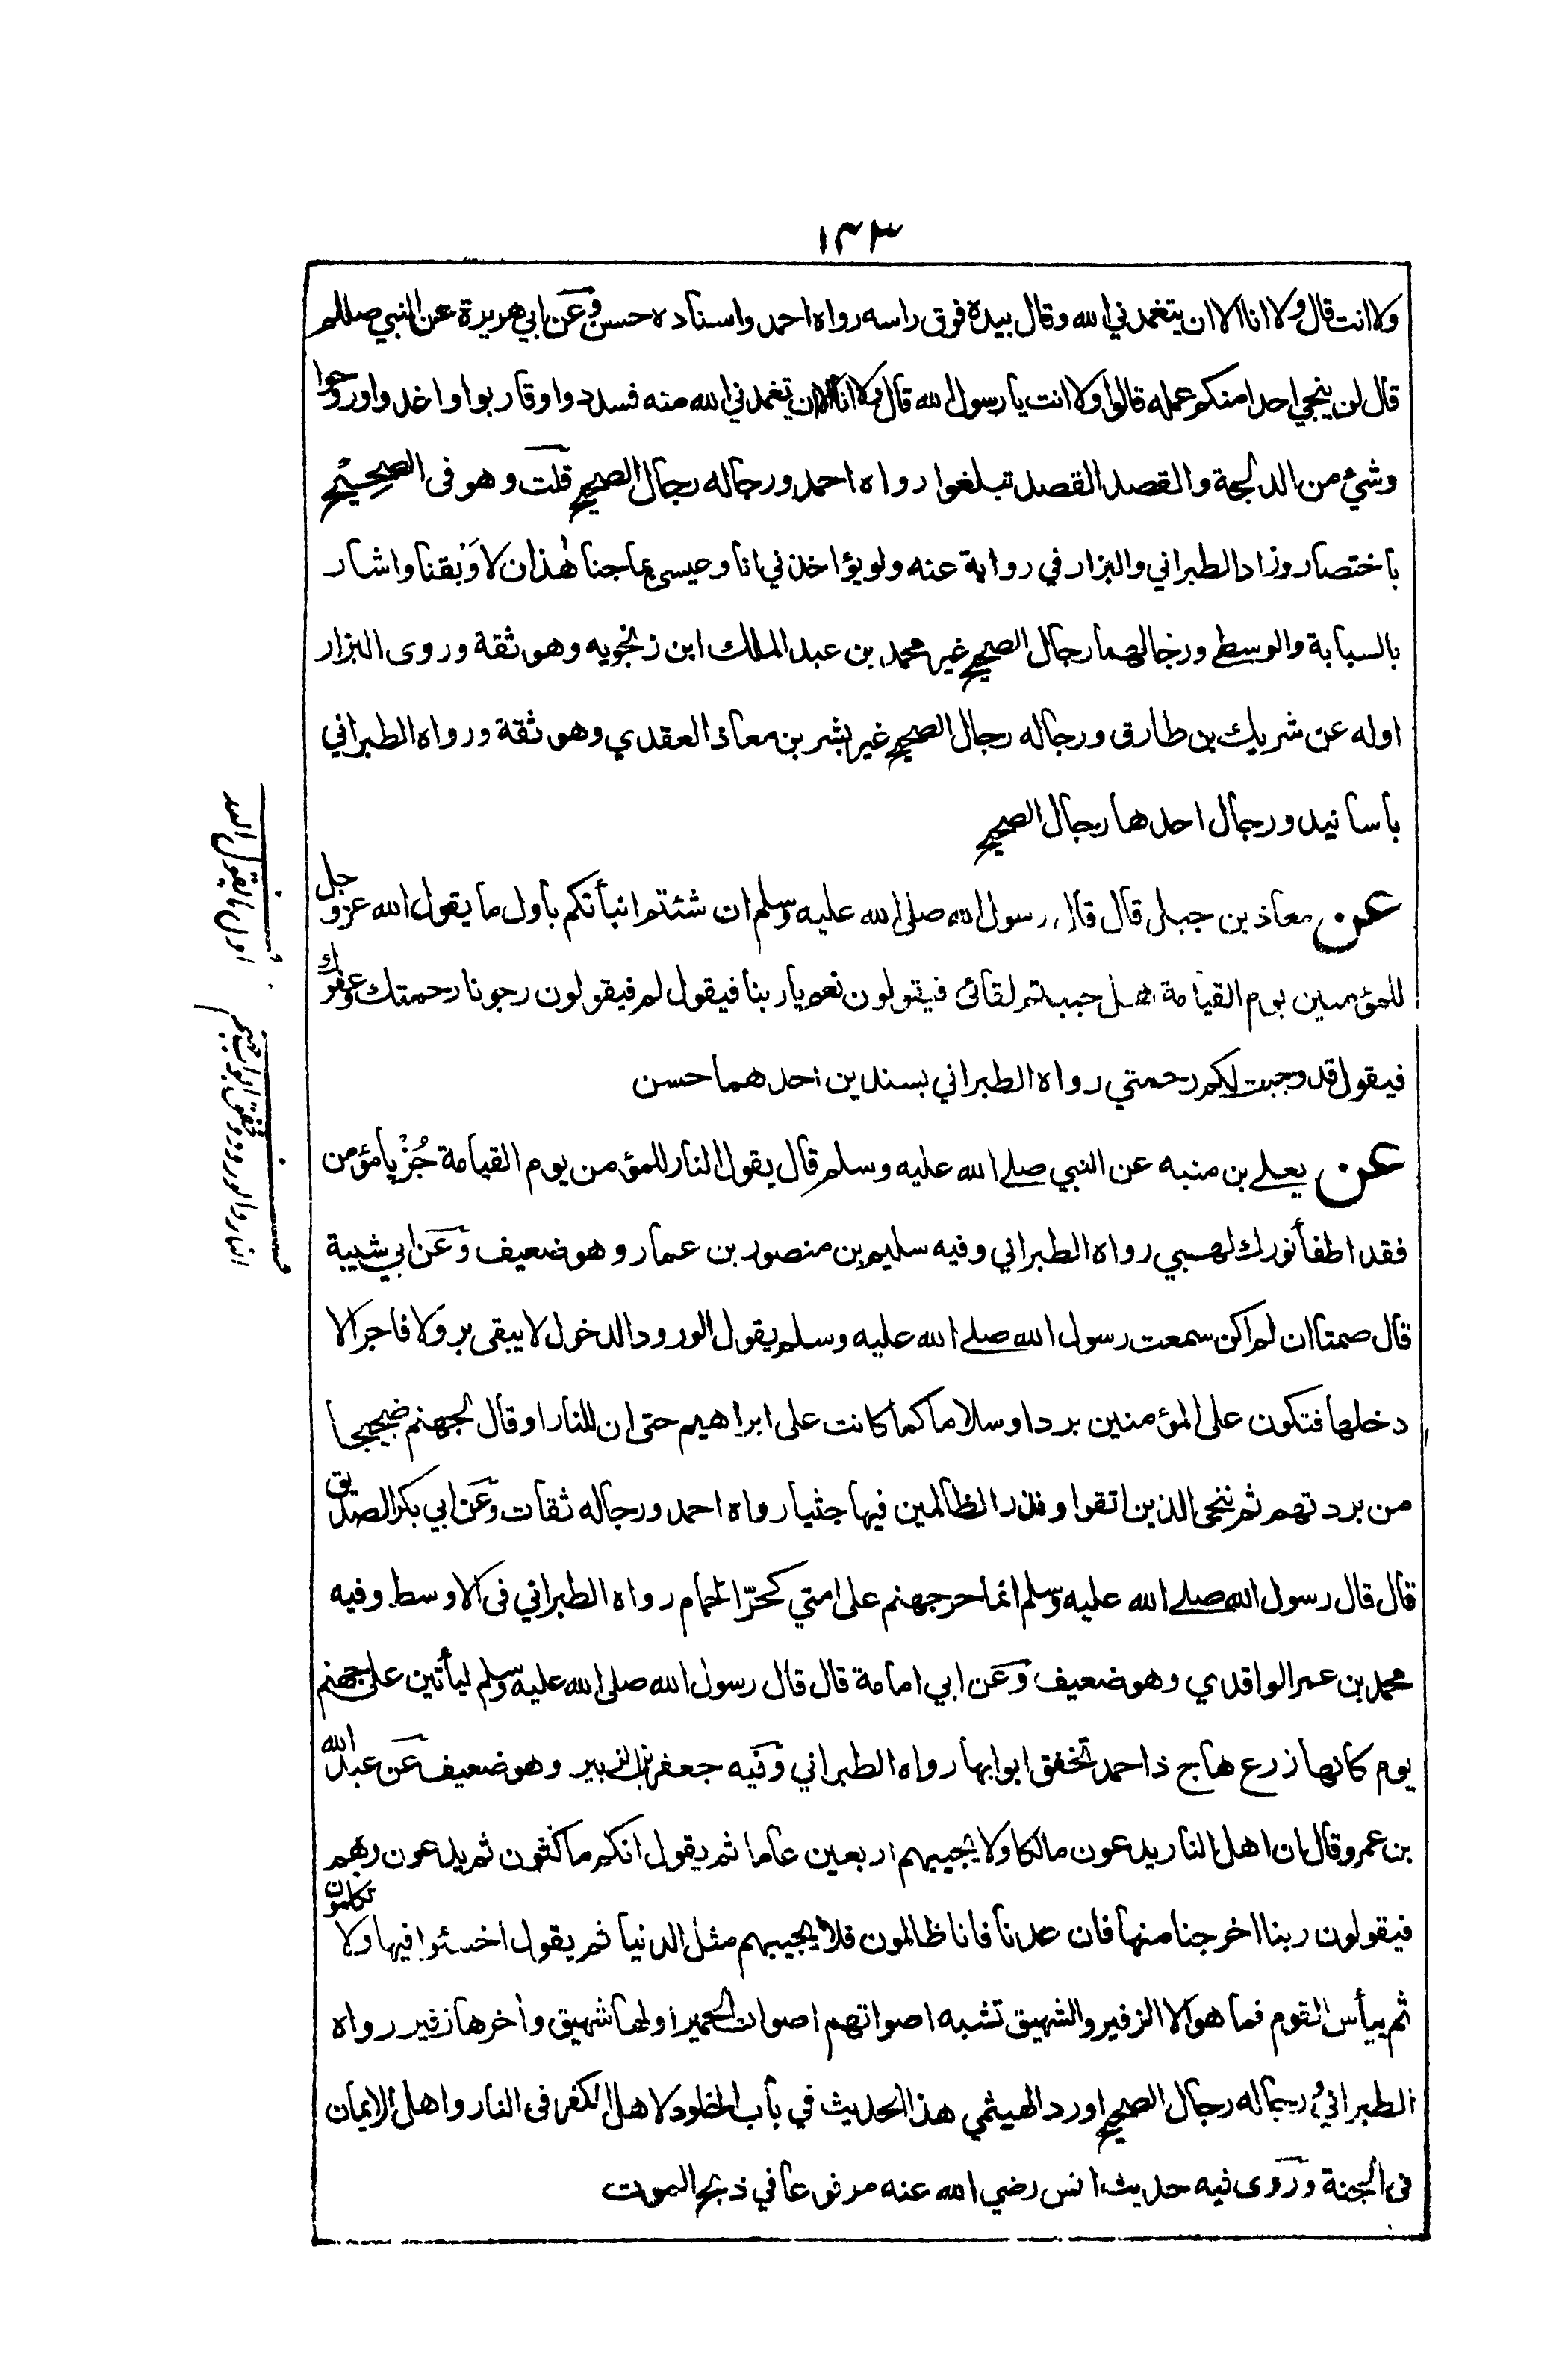 ١٤٣
ولا انت قال ولا انا الا ان يتغمدني الله وقال بيده فوق راسه رواه احمد واسناده حسن وعن ابي هريرة عن النبي صللم
قال لن ينجي احدا منكم عمله قالوا ولا انت يا رسول الله قال ولا انا الا ان يتغمدني الله منه فسددوا وقاربوا واغدوا وروحوا
وشيء من الدلجة والقصد القصد تبلغوا رواه احمد ورجاله رجال الصحيح قلت وهو فى الصحيح
باختصار وزاد الطبراني والبزار في رواية عنه ولو يؤاخذني انا وعيسى بما جنا هذان لاوبقنا واشار
بالسبابة والوسطى ورجالهما رجال الصحيح غير محمد بن عبد الملك ابن زنجويه وهو ثقة وروى البزار
اوله عن شريك بن طارق ورجاله رجال الصحيح غير بشر بن معاذ العقدي وهو ثقة ورواه الطبراني
باسانيد ورجال احدها رجال الصحيح
عن معاذ بن جبل قال قال رسول الله صلى الله عليه وسلم ان شئتم انبأتكم باول ما يقول الله عزوجل
للمؤمنين يوم القيامة هل حببتم لقائى فيقولون نعم يا ربنا فيقول لم فيقولون رجونا رحمتك وعفوك
فيقول قد وجبت لكم رحمتي رواه الطبراني بسندين احدهما حسن
عن يعلى بن منبه عن النبي صلى الله عليه وسلم قال يقول النار للمؤمن يوم القيامة جُزْ يا مؤمن
فقد اطفأ نورك لهبي رواه الطبراني وفيه سليم بن منصور بن عمار وهو ضعيف وعن ابي شيبة
قال صمتا ان لم اكن سمعت رسول الله صلى الله عليه وسلم يقول الورود الدخول لا يبقى بر ولا فاجر الا
دخلها فتكون على المؤمنين بردا وسلاما كما كانت على ابراهيم حتى ان للنار او قال لجهنم ضجيجا
من بردتهم ثم ننجى الذين اتقوا ونذر الظالمين فيها جثيا رواه احمد ورجاله ثقات وعن ابي بكر الصديق
قال قال رسول الله صلى الله عليه وسلم انما حر جهنم على امتي كحرّ الحمام رواه الطبراني فى الاوسط وفيه
محمد بن عمر الواقدي وهو ضعيف وعن ابي امامة قال قال رسول الله صلى الله عليه وسلم ليأتين على جهنم
يوم كانها زرع هاج ذا حمد تخفق ابوابها رواه الطبراني وفيه جعفر بن الزبير وهو ضعيف عن عبد الله
بن عمرو قال ان اهل النار يدعون مالكا ولا يجيبهم اربعين عاما ثم يقول انكم ماكثون ثم يدعون ربهم
فيقولون ربنا اخرجنا منها فان عدنا فانا ظالمون فلا يجيبهم مثل الدنيا ثم يقول اخسئوا فيها ولا تكلمون
ثم ييأس القوم فما هو الا الزفير والشهيق تشبه اصواتهم اصوات الحمير اولها شهيق واخرها زفير رواه
الطبراني ورجاله رجال الصحيح اورد الهيثمي هذا الحديث في باب الخلود لاهل الكفر فى النار واهل الايمان
فى الجنة وروى فيه حديث انس رضي الله عنه مرفوعا في ذبح الموت
اول ما يقول الله